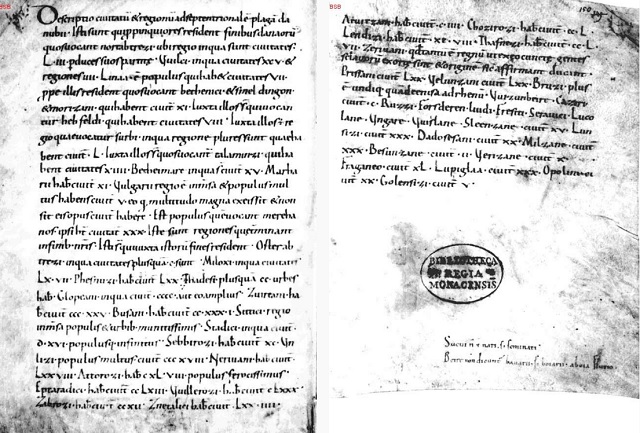 BSB
Descriptio ciuitatū & regionū ad septentrionalē plagā da
nubii. Isti sunt qui ppinquiores resident finibus danaorū
quos uocant nortabtrezi. ubi regio inqua sunt ciuitates.
L.iii. p duces suos partite. Uuilci. inqua ciuitates xc.v. &
regiones iiii. Linaa ē populus qui hab& ciuitates vii.
ppe illis resident quos uocant bethenici. & smeldingon.
& morizani. qui habent ciuit xi. Iuxta illos st qui uocan
tur hehfeldi. qui habent ciuitates viii. Iuxta illos ē re
gio que uocatur surbi. inqua regione plures sunt que ha
bent ciuit. L. Iuxta illos st quos uocant talaminzi. qui ha
bent ciuitates xiiii. Beheimare. inqua st ciuit xv. Marha
rii hab ciuit xi. Uulgarii regio ē inmsa & populus mul
tus habens ciuit v. eo q. multitudo magna ex eis sit & non
sit eis opus ciuit habere. Est populus que uocant mereha
nos. ipsi hnt ciuitat xxx. Iste sunt regiones que terminant
in finib nris. Isti st qui iuxta istorū fines resident. Osterab
trezi. inqua ciuitates plus quā c. sunt. Miloxi. inqua ciuitates
Lx.vii. Phesnuzi. hab ciuit Lxx. Thadesi. plus quā cc. urbes
hab. Glopeani. inqua ciuit. cccc. aut eo amplius. Zuireani. ha
b ciuit ccc.xxv. Busani. hab ciuit cc.xxx.i. Sittici. regio
inmsa populis & urbib munitissimis. Stadici. inqua ciuit.
d.xvi. populusq infinitus. Sebbirozi. hab ciuit xc. Un
lizi. populus multus. ciuit ccc xviii. Neriuani. hab ciuit.
Lxx viii. Attorozi. hab c xL viii. populus ferocissimus.
Eptaradici. hab ciuit cc Lxiii. Uuillerozi. hab ciuit c Lxxx.
Zabrozi. hab ciuit cc xii. Znetalici hab ciuit. Lxx.iiii.
BSB
Aturezani. hab ciuit. c.iiii. Chozirozi. hab ciuit cc L.
Lendizi. hab ciuit xc.viii. Thafnezi. hab ciuit. cc L.
vii. Zeriuani. qd tantū ē regnū ut ex eo cuncte gentes
sclauorū exorte sint & origine sic affirmant ducant.
Prissani. ciuit Lxx. Uelunzani. ciuit Lxx. Bruzi. plus
ē undiq quā de enisa ad rhenū. Uuizunbeire. Caziri.
ciuit. c. Ruzzi. Forsderen liudi. Fresiti. Serauici. Luco
lane. Ungare. Uuislane. Sleenzane. ciuit xv. Lun
sizi. ciuit xxx. Dadosesani. ciuit xx. Milzane. ciuit
xxx. Besunzane. ciuit ii. Uerizane. ciuit x.
Fraganeo. ciuit xL. Lupiglaa. ciuit xxx. Opolini. ci
uit xx. Golensizi. ciuit v.
BIBLIOTHECA
REGIA
MONACENSIS
Sueui ñ st nati. s; seminati.
Beire non dicunt bauarii. s; boiarii. a boia fluuio.